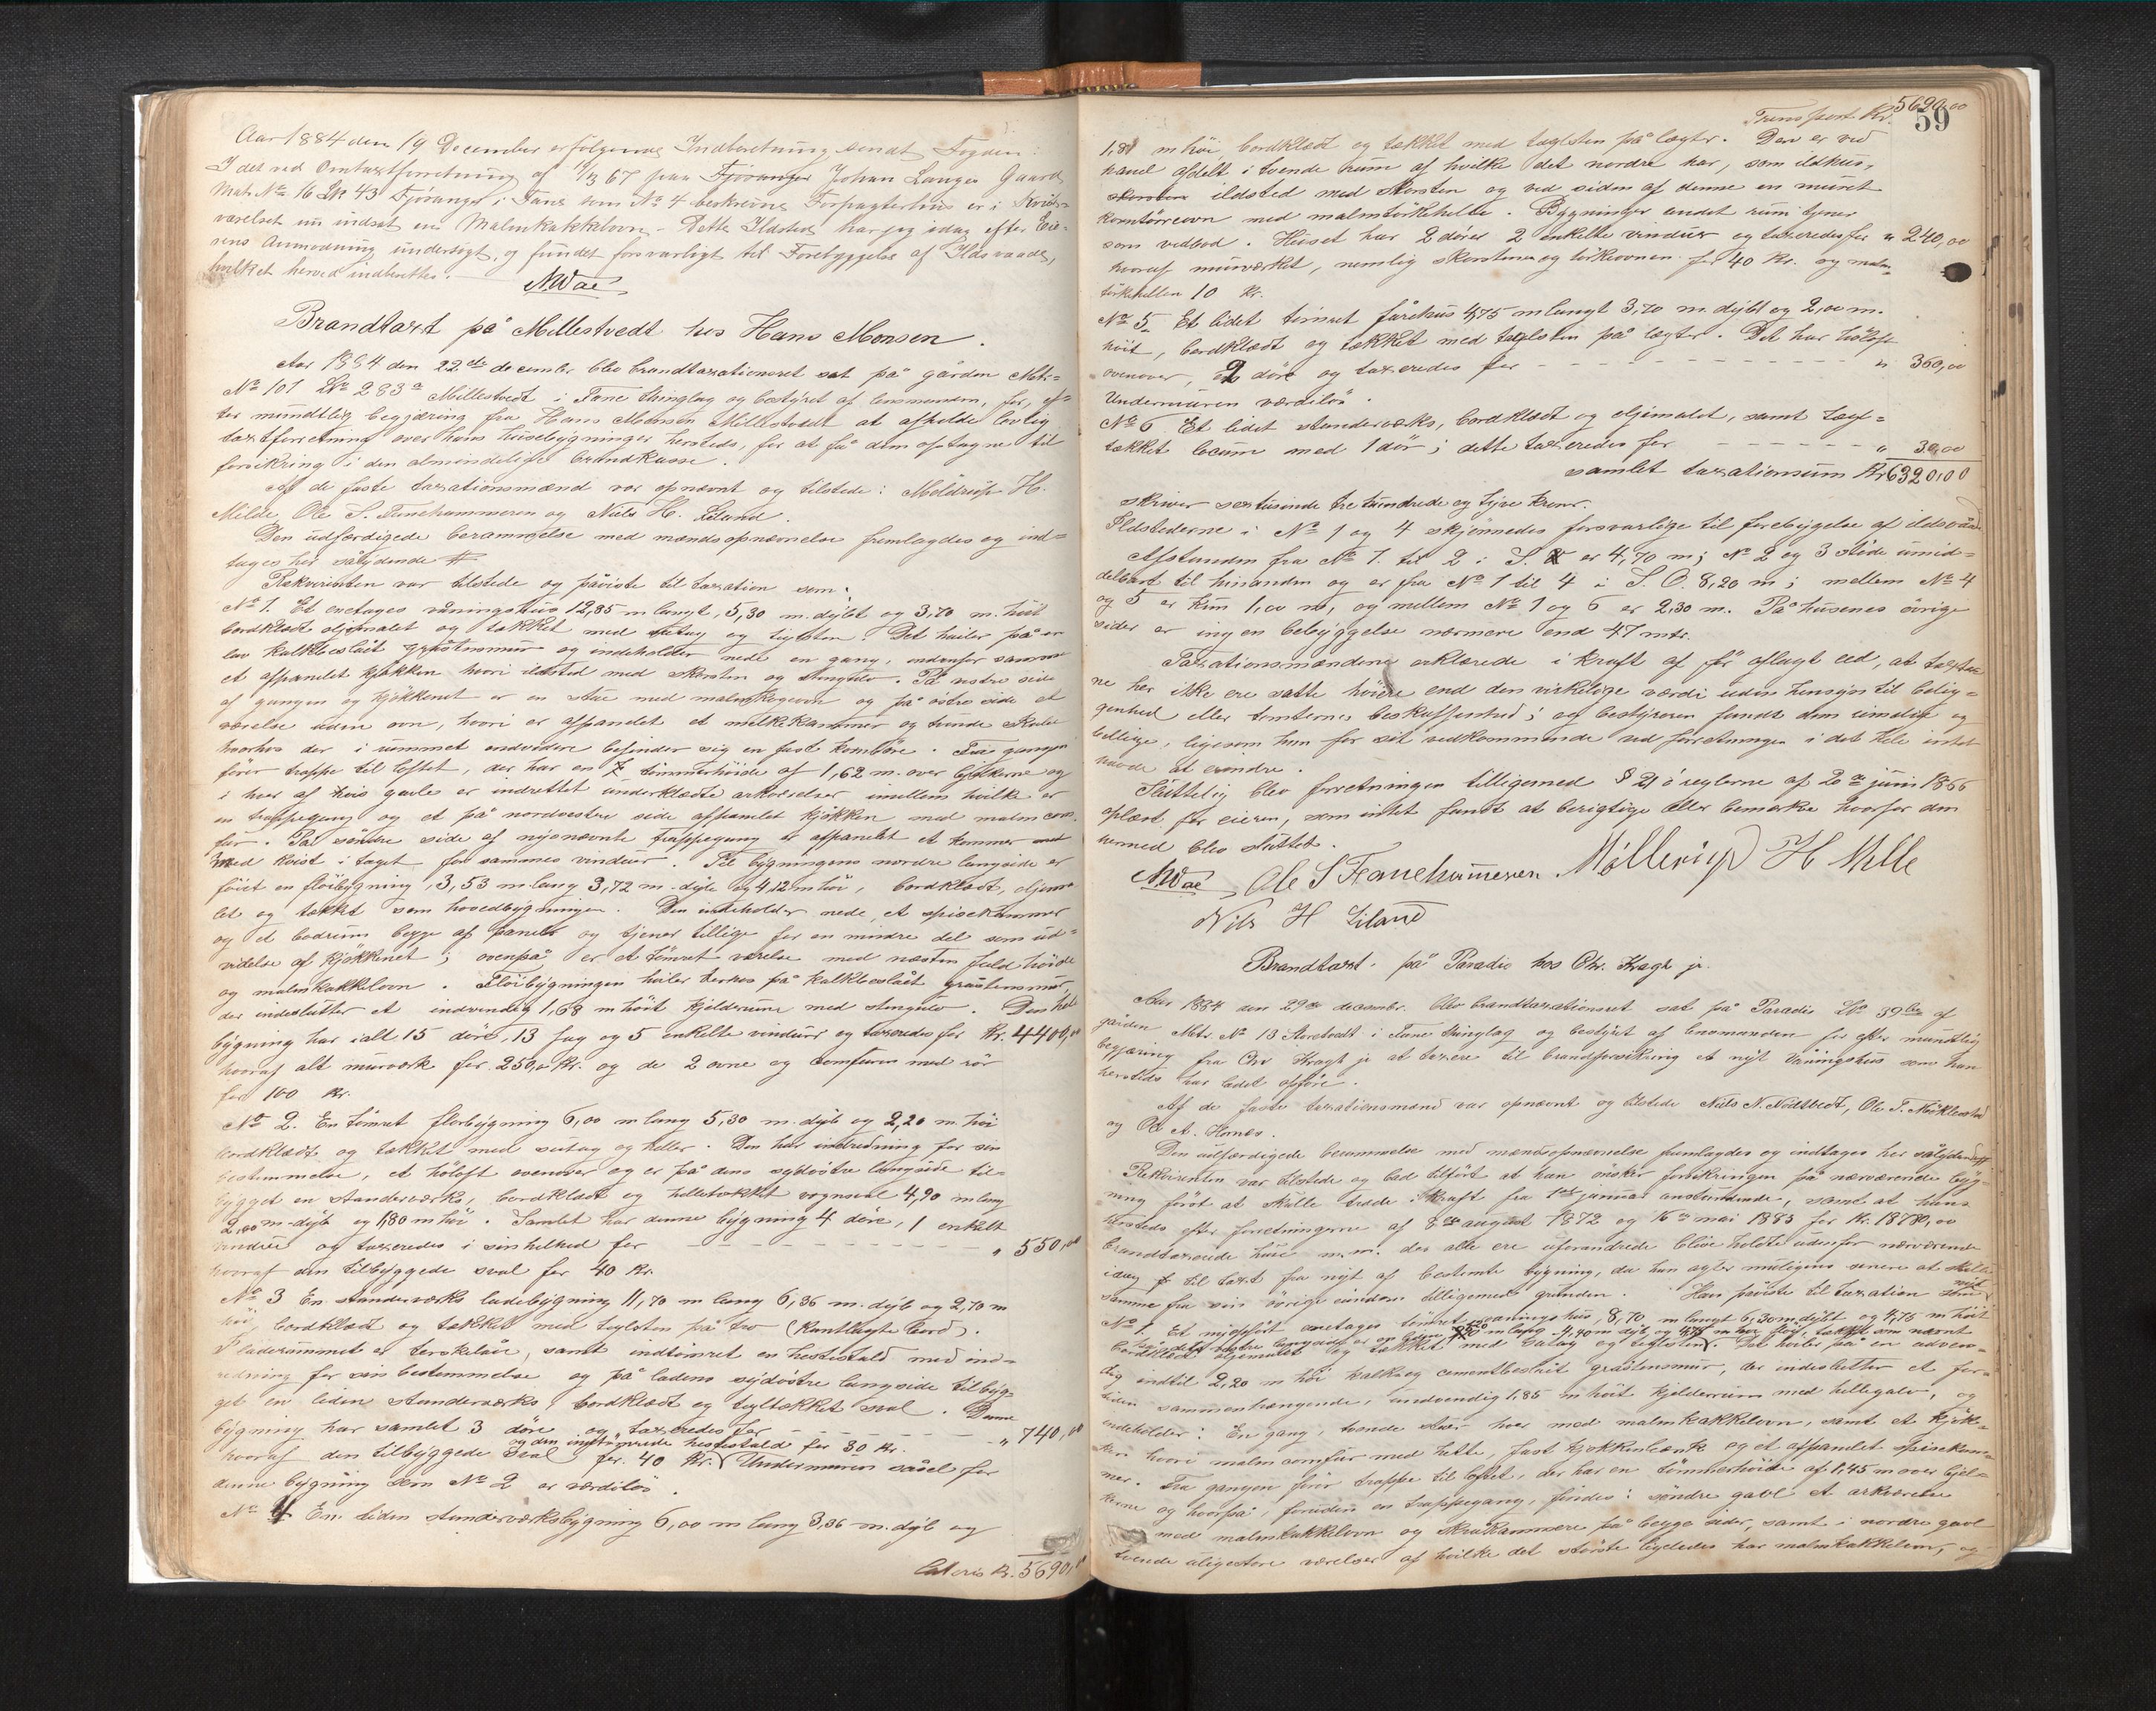 Aar 1884 den 19 December er følgende Indberetning sendt Fogden:
I det ved Omtaxtforretning af 1/3 67 paa Fjøranger Johan Langes Gaard
Mat. No 16 Lb 43 Fjøranger i Fane som No 4 beskrevne Forpagterhus er i Kvist-
værelset nu indsat en Malmkakkelovn - Dette Ildsted har jeg idag efter Eie-
rens Anmodning undersøgt, og fundet forsvarligt til Forebyggelse af Ildsvaade,
hvilket herved indberettes.
Brandtaxt på Millestvedt hos Hans Monsen.
Aar 1884 den 22de december blev brandtaxationsret sat på gården Matr=
No 101 Lno 283a Millestvedt i Fane thinglag og bestyret af lensmanden, for, ef=
ter mundtlig begjæring fra Hans Monsen Millestvedt at afholde lovlig
taxtforretning over hans husebygninger hersteds, for at få dem optagne til
forsikring i den almindelige brandkasse.
Af de faste taxationsmænd var opnævnt og tilstede: Møldrup H.
Milde, Ole S. Fanehammeren og Niels H. Liland.
Den udfærdigede berammelse med mændsopnævnelse fremlagdes og ind=
tages her sålydende #
Rekvirenten var tilstede og påviste til taxation som:
No 1. Et enetages våningshus 12,85 m langt, 5,30 m. dybt og 3,70 m. høit
bordklædt oljemalet og tækket med sutag og teglsten. Det hviler på en
lav kalkbeslåit gråstensmur og indeholder nede en gang, indenfor samme
et afpanelet kjøkken hvori ildsted med skorsten og . På vestre side
af gangen og kjøkkenet er en stue med malmkogeovn og på østre side et
værelse uden ovn, hvori er afpanelet et melkekammer og tvende skabe
hvorhos der i rummet endvidere befinder sig en fast komtøre. Fra gangen
fører trappe til loftet, der har en tømmerhøide af 1,62 m. over bjelkerne og
i hver af hvis gavle er indrettet underklædte arkværelser imellem hvilke er
en trappegang og et på nordvestre side afpanelet kjøkken med malm com-
fur. På søndre side af nysnævnte trappegang er afpanelet et kammer
med kvist i taget for sammes vindue. Til bygningens nordre langside er
føiet en fløibygning, 3,53 m lang 3,72 m. dyb og 4,12 m høi, bordklædt, oljema-
let og tækket som hovedbygningen. Den indeholder nede, et spisekammer
og et bodrum begge af panels og tjener tillige for en mindre del som ud=
videlse af kjøkkenet; ovenpå er et tømret værelse med næsten fuld høide
og malmkakkelovn. Fløibygningen hviler derhos på kalkbeslåit gråstensmur,
der indeslutter et indvendig 1,68 m høit kjelderrum med . Den hele
bygning har ialt 15 døre, 13 fag og 5 enkelte vinduer og taxeredes for Kr. 4400,00
hvoraf alt murværk for 250,00 Kr. og de 2 ovne og comfuren med rør
for 100 Kr.
No 2. En tømret florbygning 6,00 m lang 5,30 m. dyb og 2,20 m. høi
bordklædt, og tækket med sutag og heller. Den har indredning for sin
bestemmelse, et høloft ovenover og er på dens sydøstre langside til=
bygget en standerværks, bordklædt og helletækket vognsval 4,90 m lang
2,00 m. dyb og 1,80 m høi. Samlet har denne bygning 4 døre, 1 enkelt
vindue og taxeredes i sin helhed for - - - - - - - - - - " 550,00
hvoraf den tilbyggede sval for 40 Kr.
No 3 En standerværks ladebygning 11,70 m lang 6,36 m. dyb og 2,70 m
høi, bordklædt og tækket med teglsten på tro (kantlagte bord).
I laderummet er terskelåve, samt indtømret en hestestald med ind=
redning for sin bestemmelse og på ladens sydøstre langside tilbyg=
get en liden standerværks, bordklædt og tegltækket sval. Denne
bygning har samlet 3 døre og taxeredes for - - - - - - - " 740,00
og den indtømrede hestestald for 80 Kr.
hvoraf den tilbyggede sval for 40 Kr. Undermuren såvel for
denne bygning som No 2 er værdiløs.
No 4 En liden standerværksbygning 6,00 m lang 3,36 m. dyb og
Lateris Kr. 5690,00
Transport Kr. 5690,00
59
1,80 m høi, bordklædt og tækket med taglsten på lægter. Den er ved
panel afdelt i tvende rum af hvilke det nordre har, som ildhus,
ildsted med skorsten og ved siden af denne en muret
korntørreovn med malmtørkehelle. Bygningens andet rum tjener
som vedbod. Huset har 2 døre 2 enkelte vinduer og taxeredes for " 240,00
hvoraf murværket, nemlig skorstenen og tørkeovnen for 40 Kr. og malm-
tørkehellen 10 Kr.
No 5. Et lidet tømret fårehus 4,75 m langt 3,70 m. dybt og 2,00 m.
høit, bordklædt og tækket med taglsten på lægter. Det har høloft
ovenover, 2 døre og taxeredes for - - - - - - - - - - " 360,00
Undermuren værdiløs.
No 6 Et lidet standerværks, bordklædt og oljemalet, samt tagl=
tækket locum med 1 dør; dette taxeredes for - - - - - - " 30,00
samlet taxationssum Kr 6320,00
skriver sextusinde tre hundrede og tyve kroner.
Ildstederne i No 1 og 4 skjønnedes forsvarlige til forebygelse af ildsvåde.
Afstanden fra No 1. til 2 i S. er 4,70 m; No 2 og 3 støde umid=
delbart til hinanden og er fra No 1 til 4 i S. O. 8,20 m; mellem No 4
og 5 er kun 1,00 m, og mellem No 1 og 6 er 2,30 m. På husenes øvrige
sider er ingen bebyggelse nærmere end 47 mtr.
Taxationsmændene erklærede i kraft af før aflagt eed, at taxter-
ne her ikke ere satte høiere end den virkelige værdi uden hensyn til belig=
genhed eller tomternes beskaffenhed; og bestyreren fandt dem rimelig og
billige, ligesom han for sit vedkommende ved forretningen i det hele intet
havde at erindre.
Sluttelig blev forretningen tilligemed § 21 i reglerne af 20de juni 1866
oplæst for eieren, som intet fandt at berigtige eller bemærke hvorfor den
hermed blev sluttet.
Ole S Fanehammeren. Møllerup H Milde
Nils H Liland
Brandtaxt. på Paradis hos Chr. Kragh jr.
Aar 1884 den 29de decembr. blev brandtaxationsret sat på Paradis Lno 39 af
gården Mtr. No 13 Storetvedt i Fane thinglag og bestyret af lensmanden for efter mundtlig
begjæring fra Chr Kragh jr at taxere til brandforsikring et nyt våningshus som han
hersteds har ladet opføre.
Af de faste taxationsmænd var opnævnt og tilstede Niels N. Nattvedt, Ole T. Møklestad
og Ole A. Hornæs.
Den udfærdigede berammelse med mændsopnævnelse fremlagdes og indtages her sålydende
Rekvirenten var tilstede og bad tilført at han ønsker forsikringen på nærværende byg=
ning først at skulle træde i kraft fra 1ste januar anstundende, samt at hans
hersteds efter forretningerne af 8de august 1872 og 16de mai 1883 for Kr. 18780,00
brandtaxerede huse m.m. der alle ere uforandrede blive holdte udenfor nærværende
idag til taxt fra nyt af bestemte bygning, da han agter muligens senere at skille
samme fra sin øvrige eiendom tilligemed grunden. Han påviste til taxation som nyt
No 1. Et nyopført enetages tømret vaaningshus, 8,70 m langt 6,30 m. dybt og 4,75 m høit
bordklædt oljemalet og tækket med sutag og teglsten. Det hviler på en udven-
dig indtil 2,20 m høi kalk og cementbeslåit gråstensmur, der indeslutter et for-
siden sammenhængende, indvendig 1,85 m høit kjelderrum med hellegulv, og
indeholder: En gang, tvende stuer hver med malmkakkelovn, samt et kjøk=
ken hvori malmcomfur med hette, fast kjøkkenbænk og et afpanelet spisekam=
mer. Fra gangen fører trappe til loftet, der har en tømmerhøide af 1,45 m over bjel=
kerne og hvorpå, foruden en trappegang, findes: søndre gavl et arkværelse
med malmkakkelovn og skråkammere på begge sider, samt i nordre gavl
tvende uligestore værelser af hvilke det største ligeledes har malmkakkelovn, og